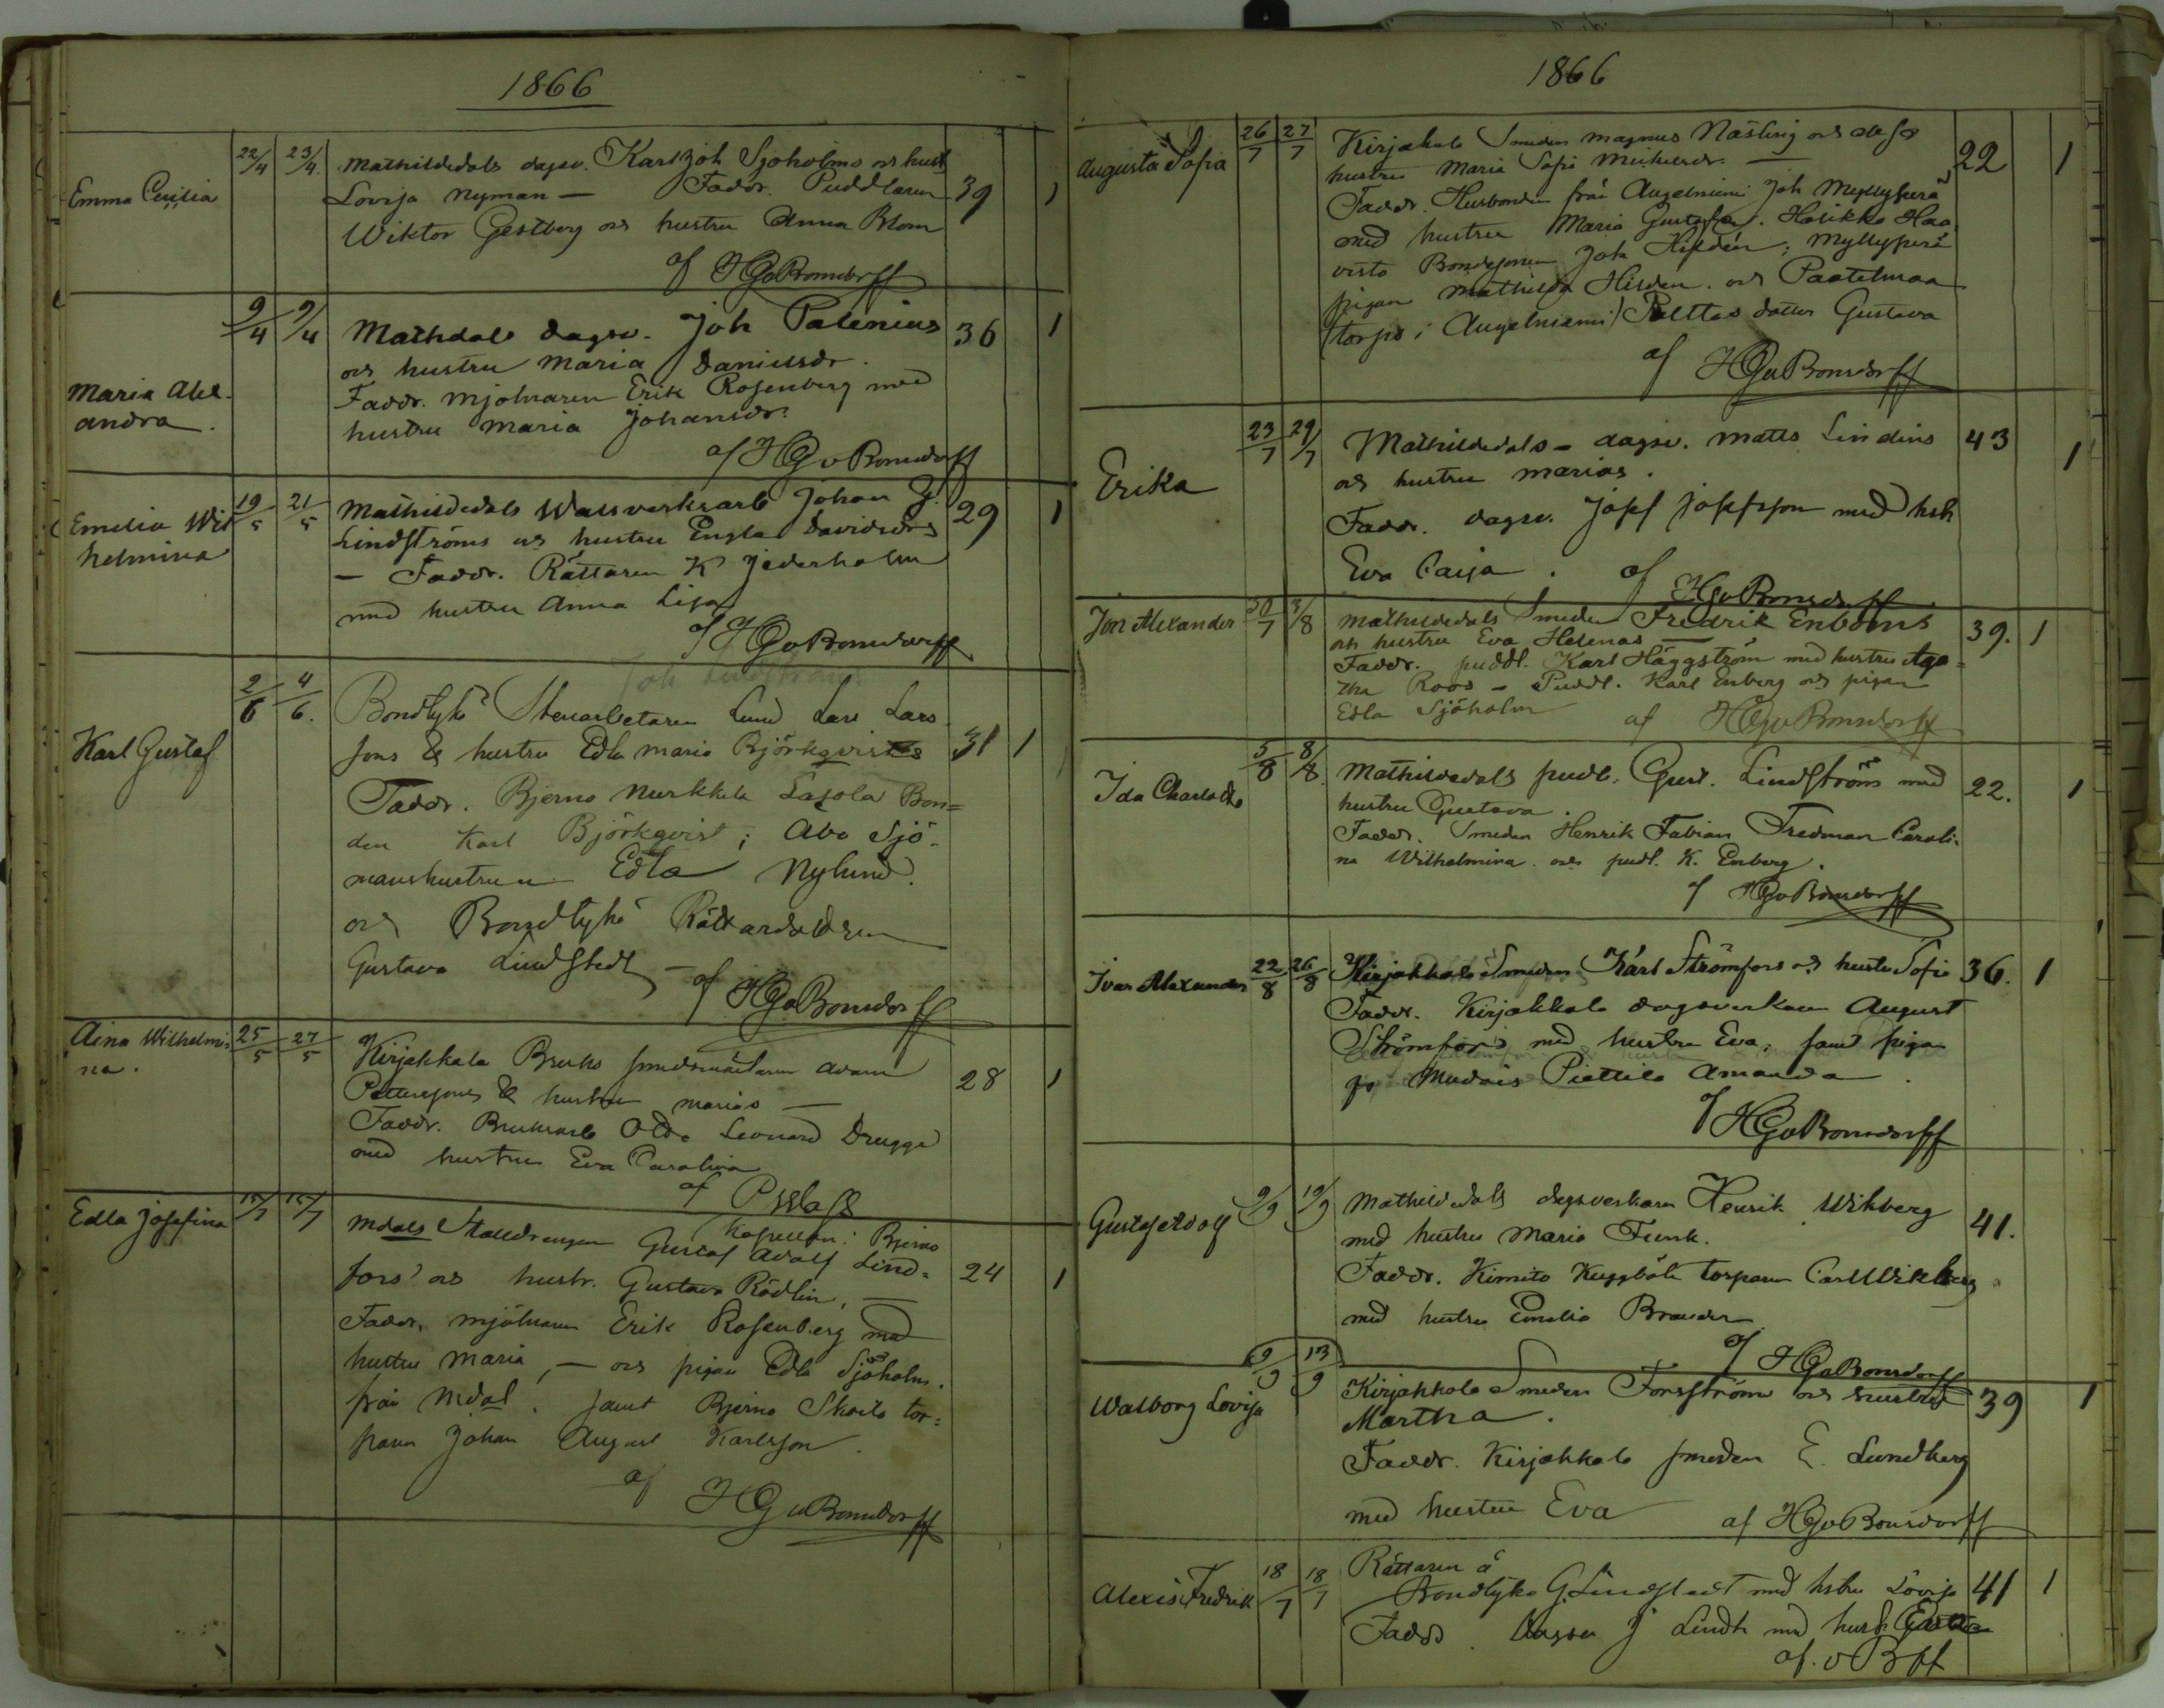 1866
Emma Cecilia 22/4 23/4 Mathildedals dagsv. Karl Joh Sjöholms och hust
Lovisa Nyman — Faddr. Puddlaren 39 1
Wiktor Gestberg och hustru Anna Blom
af HGvBonsdorff
9/4 9/4 Mathdals dagsv. Joh Palenius 36 1
och hustru Maria Danielsdr.
Maria Alex-
andra.
Faddr. mjölnaren Erik Rosenberg med
hustru Maria Johansdr.
af HGvBonsdorff
Emelia Wil
helmina
19/5 21/5 Mathildedals Wallsverksarb Johan G. 29 1
Lindströms och hustru Engla Davidsdrs
— Faddr. Rättaren K Jederholm
med hustru Anna Lisa
af HGvBonsdorff
Joh Lindström
2/6 4/6. Bondtykö Stenarbetaren Lund Lars Lars
Karl Gustaf sons & hustru Edla Maria Björkqvists 31 1
Faddr. Bjerno Nurkkela Lasola Bon=
den Karl Björkqvist; Abo Sjö-
manshustrun Edla Nylund.
och Bondtykö Rättardottren
Gustava Lindstedt —
af HGvBonsdorff
Aina Wilhelmi
na.
25/5 27/5 Kirjakkala Bruks smidsmästaren Adam 28 1
Pettersons & hustru Marias —
Faddr. Bruksarb Oldo Leonard Drugge
med hustru Eva Carolina
af
Kapellan i Bjerno
Edla Josefina 15/7 15/7 Mdals Stalldrengen Gustaf Adolf Lind= 24 1
fors' och hustr. Gustava Rödlin, —
Faddr. mjölnaren Erik Rosenberg med
hustru Maria, — och pigan Edla Sjöholm.
från Mdal. samt Bjerno Skoila tor=
paren Johan August Karlsson.
af HGvBonsdorff
1866
Augusta Sofia 26/7 27/7 Kirjakala Smeden Magnus Näsling och dess 22 1
hustru Maria Sofi Mickelsdr. —
Faddr. Husbonden från Angelniemi Joh Myllyperä
med hustru Maria Gustafva. Halikko Haa
visto Bondesonen Joh Hilden; Myllyperä
pigan Mathilda Hilden. och Paatelmaa
torps i Angelniemi Polttas dotter Gustava
af HGvBonsdorff
Erika 23/7 29/7 Mathildedals - dagsv. Matts Lindins 43 1
och hustru Marias.
Faddr. dagsv. Josef Josefsson med hsh
Eva Caisa. af
HGvBonsdorff
Jon Alexander 30/7 3/8 Mathildedals Smeden Fredrik Enboms 39. 1
och hustru Eva Helenas —
Faddr. puddl. Karl Häggström med hustru Aga=
tha Roos - Puddl. Karl Enberg och pigan
Edla Sjöholm af HGvBonsdorff
Ida Charlotta 5/8 8/8. Mathildedals pudl. Gust. Lindströms med 22. 1
hustru Gustava.
Faddr. Smeden Henrik Fabian Fredman Caroli-
na Wilhelmina. och pudl. K. Enberg.
af HGvBonsdorff
Ivar Alexander 22/8 26/8 Kirjakkala Smeden Karl Strömfors och hustru Sofia 36. 1
Faddr. Kirjakkala dagsverkaren August
Strömfors med hustru Eva; samt pigan
Pietilä Amanda.
af HGvBonsdorff
Gustaf Adolf 9/9 19/9 Mathildedals dagsverkaren Henrik Wikberg 41.
med hustru Maria Funk.
Faddr. Kimito Kuggböle torparen Carl Wikberg
med hustru Emelia Brander
af HGvBonsdorff
Walborg Lovisa 9/9 13/9 Kirjakkala Smeden Forsström och hustru 39 1
Martha.
Faddr. Kirjakkala smeden E. Lundberg
med hustru Eva af HGvBonsdorff
Alexis Fredrik 18/7 18/7 Rättaren å
Bondtyko G. Lindstedt med hstru Lovisa 41 1
Faddr. dagsv J Lindh med hust
af. vBff